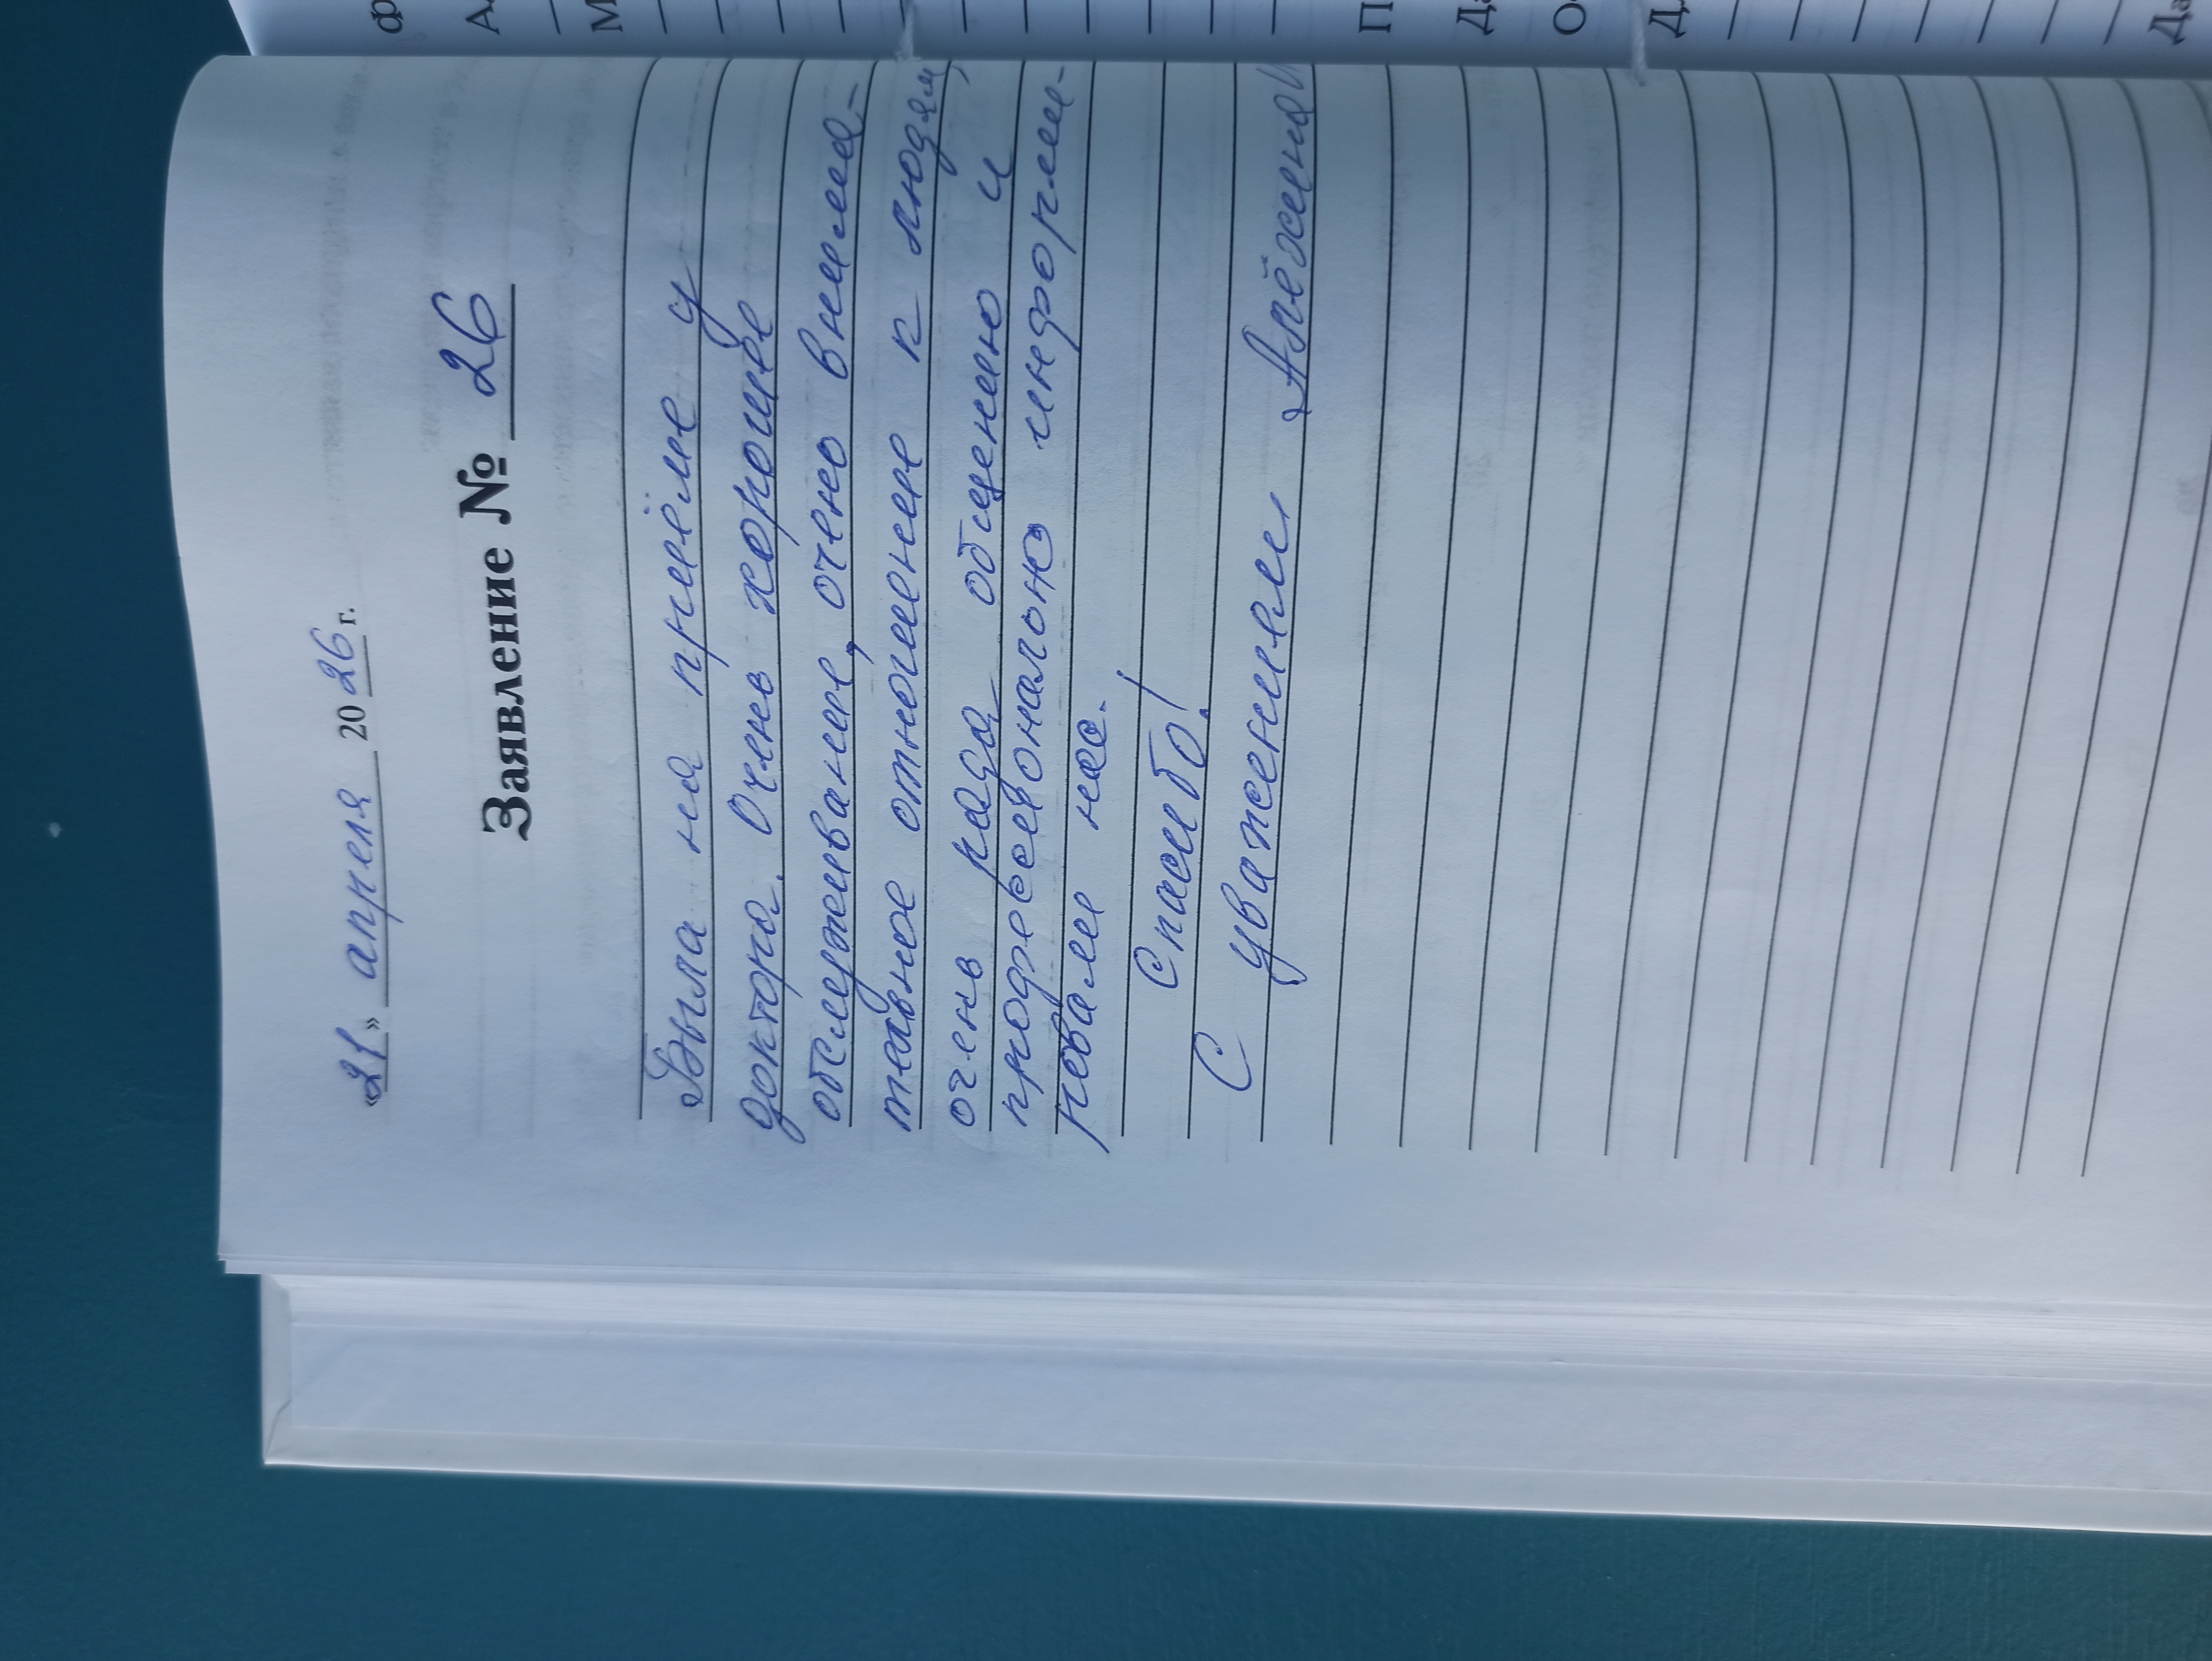 «21» апреля 2026 г.
Заявление № 26
Была на приёме у
доктора. Очень хорошее
обслуживание, очено внима-
тельное отношение к людям,
очень рада общению и
профессионально информи-
ровали нас.
Спасибо!
С уважением